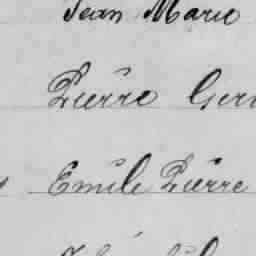 Jean Marie
Pierre
Emile Pierre